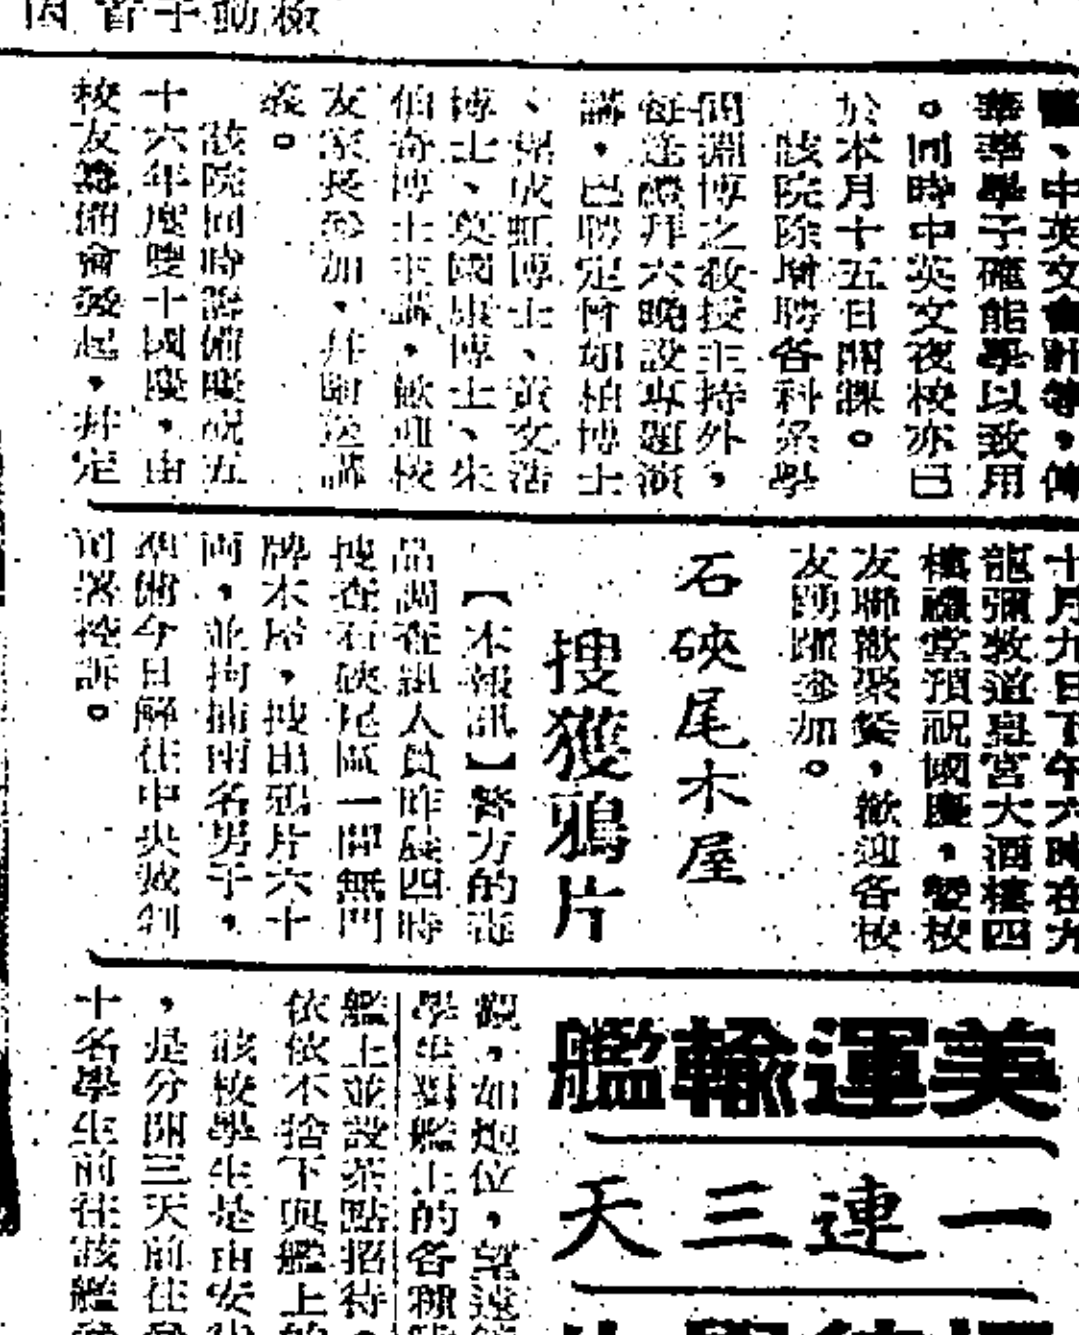 、中英文會計等，俾
莘莘學子確能學以致用
。同時中英文夜校亦已
於本月十五日開課。
該院除增聘各科系學
問淵博之教授主持外，
每逢禮拜六晚設專題演
講，已聘定曾如柏博士
、成虹博士、黃文浩
博士、吳國康博士、朱
伯奇博士主講，歡迎校
友家長參加，并贈送講
義。
該院同時籌備慶祝五
十六年度雙十國慶，由
校友籌備會發起，并定
十月九日下午六時在九
龍彌敦道皇宮大酒樓四
樓禮堂預祝國慶，暨校
友聯歡聚餐，歡迎各校
友踴躍參加。
石硤尾木屋
搜獲鴉片
【本報訊】警方的毒
品調查組人員昨晨四時
搜查石硤尾區一間無門
牌木屋，搜出鴉片六十
両，並拘捕兩名男子，
準備今日解往中央裁判
司署控訴。
美運輸艦
一連三天
觀，如炮位，望遠
學生對艦上的各種
艦上並設茶點招待。
依依不捨下與艦上的
該校學生是由安
，是分開三天前往
十名學生前往該艦